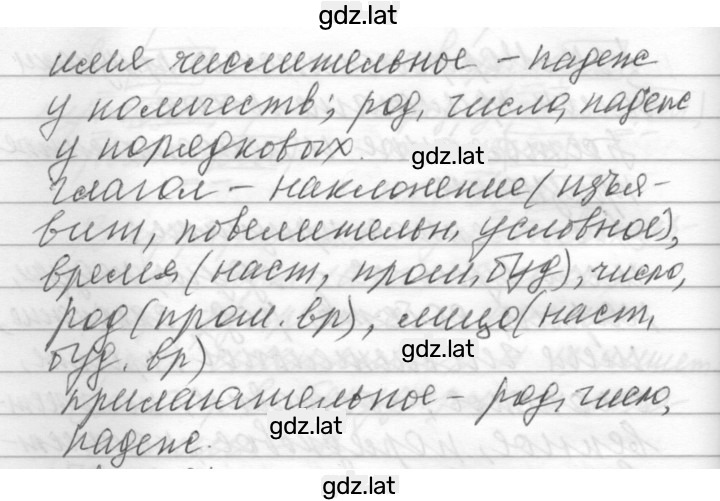 gdz.lat
имя числительное – падеж
у количеств; род, число, падеж
у порядковых.
gdz.lat
глагол – наклонение (изъя-
вит, повелительн, условное),
время (наст, прош, буд), число,
род (прош. вр), лицо (наст,
буд. вр)
gdz.lat
прилагательное – род, число,
gdz.lat
падеж.
gdz.lat